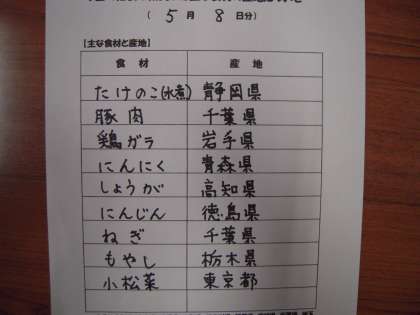 ( 5 月 8 日分)
【主な食材と産地】
食 材 産 地
たけのこ(水煮) 静岡県
豚肉 千葉県
鶏ガラ 岩手県
にんにく 青森県
しょうが 高知県
にんじん 徳島県
ねぎ 千葉県
もやし 栃木県
小松菜 東京都